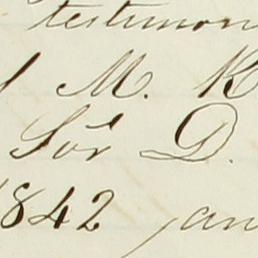 testimon
M. K
Sór D.
1842 jan